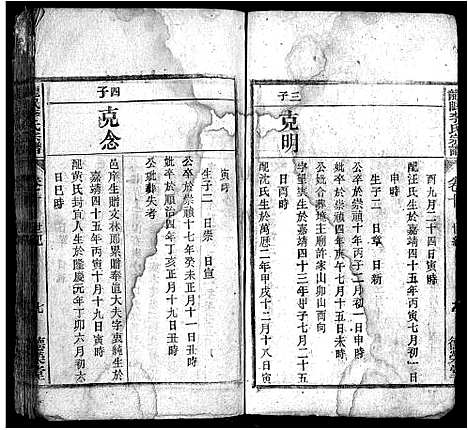 龍眠李氏宗譜
卷十 世紀
德榮堂
酉九月二十四日寅時
配汪氏生於嘉靖四十五年丙寅七月初九日
申時
生子二 日章 日新
公卒於崇禎十年丙子二月初一日申時
妣卒於崇禎四年庚午七月十五日寅時
公妣合葬墳主廟許家山卯山酉向
三子
克明
生於嘉靖四十三年甲子七月二十五
日酉時
配沈氏生於萬歷二年甲戌十二月十八日寅
寅時
生子二 日崇 日宣
公卒於崇禎十七年癸未正月十一日丑時
妣卒於順治四年丁亥正月十九日丑時
公妣葬失考
四子
克念
邑庠生贈文林郎累贈奉直大夫字衷純生於
嘉靖四十五年丙寅十月十九日寅時
配黃氏封宜人生於隆慶元年丁卯六月初六
日巳時
龍眠李氏宗譜
卷十 世紀
九
德榮堂